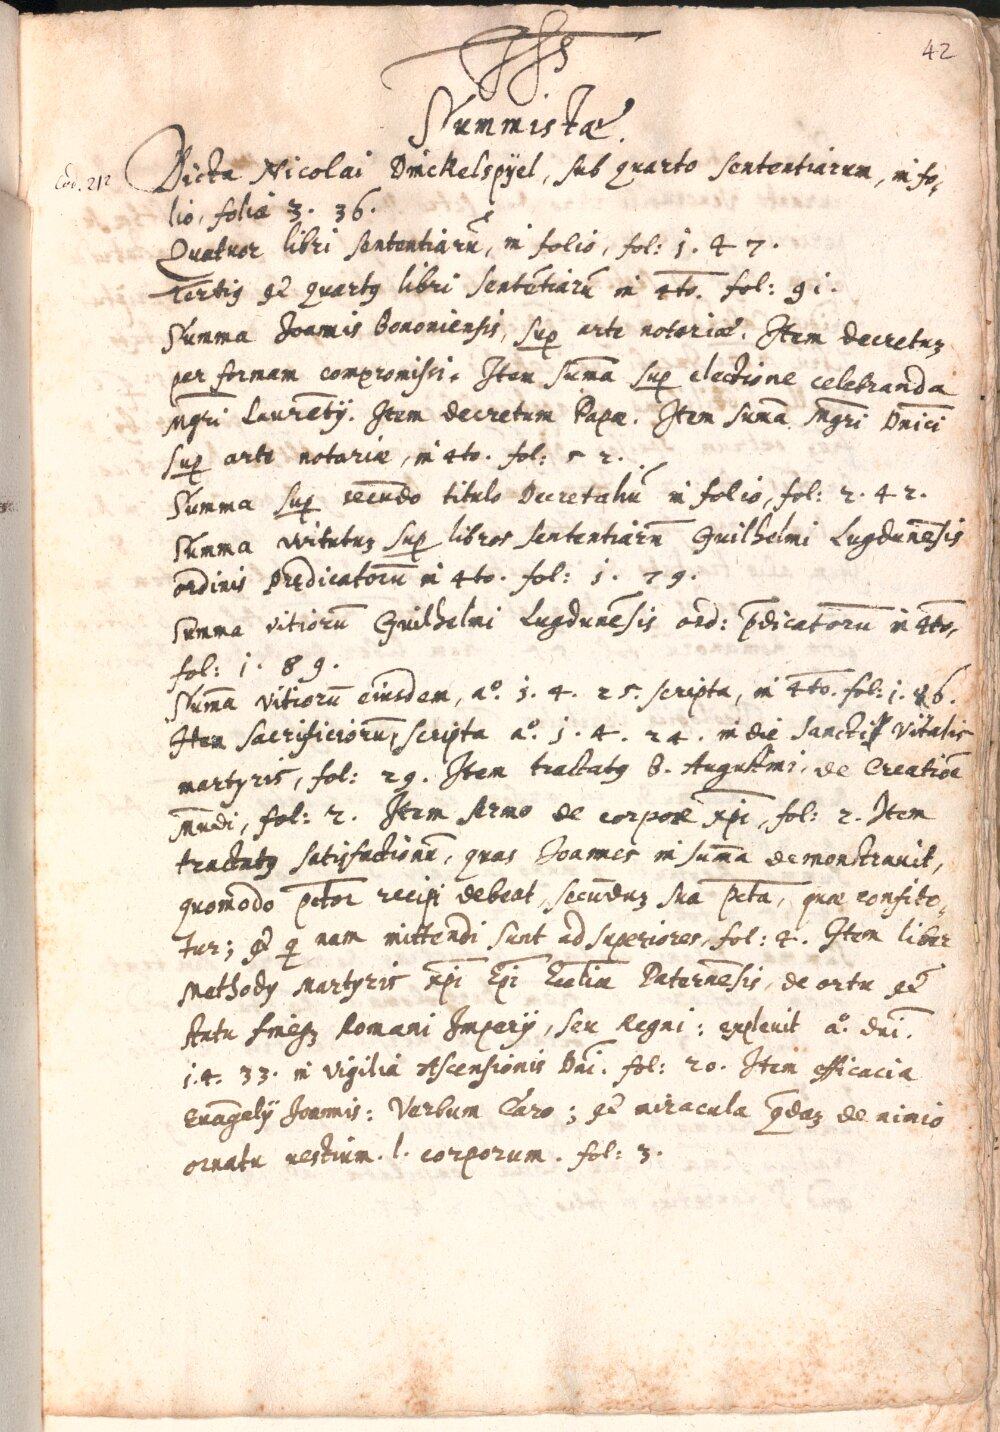 42
Summistæ.
Cod. 212
Dicta Nicolai Dinckelspÿel, sub quarto sententiarum, in fo,
lio, folia 3. 36.
Quatuor libri sententiarũ, in folio, fol: 1. 4 7.
Tertiꝰ et quartꝰ libri sentẽtiarũ in 4to. fol: 91.
Summa Joannis Bononiensis, sup arte notariæ. Item decretuꝫ
per formam compromissi. Item Sum̃a sup electione celebranda
Mgr̃i Laurẽtÿ. Item decretum Papæ. Item Sum̃a Mgr̃i Dñici
sup arte notariæ, in 4to. fol: 5 2.
Summa sup secundo titulo Decretaliũ in folio, fol: 2. 4 2.
Summa virtutuꝫ sup libros sententiarũ Guilhelmi Lugdunẽsis
ordinis Predicatorũ in 4to. fol: 1. 7 9.
Summa vitiorũ Guilhelmi Lugdunẽsis ord: p̃dicatorũ in 4to,
fol: 1. 8 9.
Sum̃a vitiorũ eiusdem, aº. 1. 4. 2 5. scripta, in 4to. fol: 1. 8 6.
Item sacrificiorũ, scripta aº. 1. 4. 2 4. in die Sancti Vitalis
martyris, fol: 29. Item tractatꝰ S. Augustini, de Creatiõe
Mundi, fol: 2. Item sermo de corpore xp̃i, fol: 2. Item
tractatꝰ satisfactionũ, quas Joannes in sum̃a demonstrauit,
quomodo pc̃tor recipi debeat, secunduꝫ sua pc̃ta, quæ confite,
tur; et qui nam mittendi sunt ad superiores, fol: 4. Item liber
Methodÿ martyris xp̃i Ep̃i Eccl̃iæ Paternẽsis, de ortu et
statu finieꝫ Romani Imperÿ, seu Regni: expleuit aº. dñi.
1. 4. 33. in vigilia Ascensionis Dñi. fol: 20. Item efficacia
Euãgelÿ Joannis: Verbum Caro; et miracula q̃daꝫ de nimio
ornatu uestium. l. corporum. fol: 3.